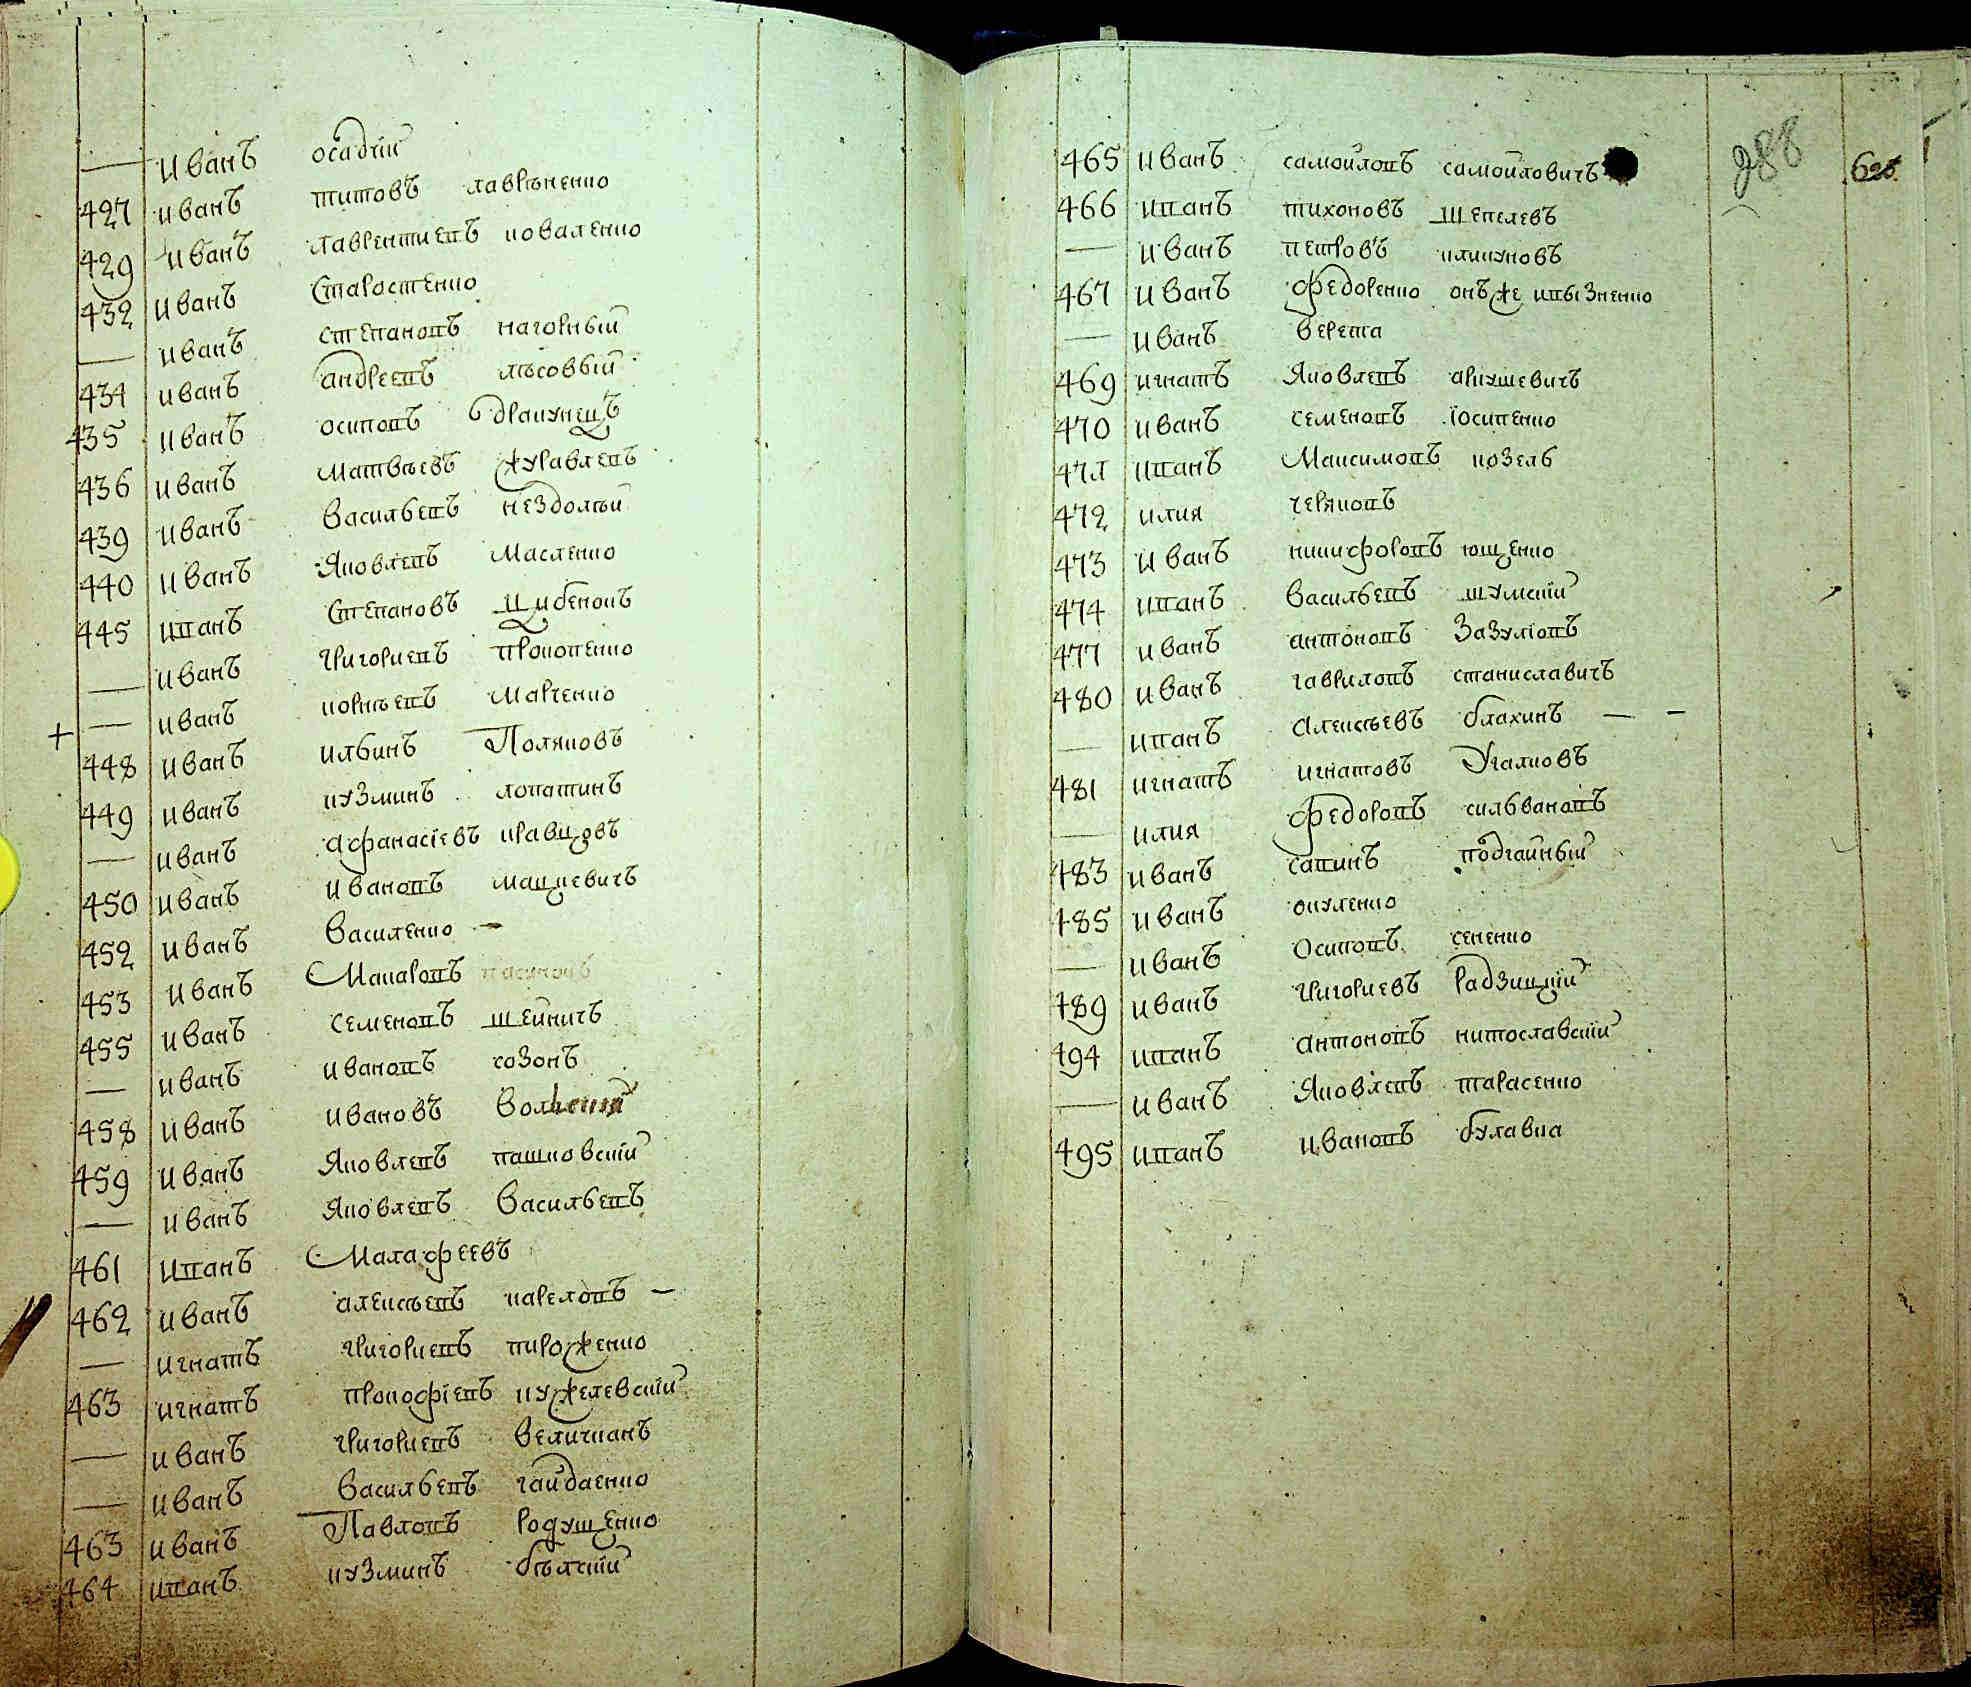 — Иванъ осадчiй
427 Иванъ титовъ лаврѣненко
429 Иванъ лаврентиевъ коваленко
432 Иванъ Старостенко
— Иванъ степановъ нагорный
434 Иванъ андреевъ лѣсовый
435 Иванъ осиповъ дракунецъ
436 Иванъ Матвѣевъ журавлевъ
439 Иванъ Васильевъ нездолѣй
440 Иванъ Яковлевъ Масленко
445 Иванъ Степановъ
— Иванъ григориевъ прокопенко
— Иванъ корнѣевъ Марченко
448 Иванъ ильинъ Поляковъ
449 Иванъ кузминъ лопатинъ
— Иванъ Афанасiевъ кравцовъ
450 Иванъ Ивановъ мацкевичъ
452 Иванъ Василенко —
453 Иванъ Макаровъ
455 Иванъ семеновъ шейничъ
— Иванъ Ивановъ созонъ
458 Иванъ Ивановъ
459 Иванъ Яковлевъ пашковскiй
— Иванъ Яковлевъ Васильевъ
461 Иванъ Малафеевъ
462 Иванъ алексѣевъ кареловъ —
— игнатъ григориевъ пироженко
463 игнатъ прокофiевъ кужелевскiй
— Иванъ григориевъ Величканъ
— Иванъ Васильевъ гайдаенко
463 Иванъ Павловъ
464 Иванъ кузминъ бѣлскiй
465 Иванъ самойловъ самойловичъ
288
466 Иванъ тихоновъ шепелевъ
— Иванъ петровъ пликуновъ
467 Иванъ Федоренко онъже
— Иванъ Верета
469 игнатъ Яковлевъ аркушевичъ
470 Иванъ семеновъ iосипенко
471 Иванъ Максимовъ козель
472 илия
473 Иванъ никифоровъ ющенко
474 Иванъ Васильевъ шумскiй
477 Иванъ антоновъ Зазулiовъ
480 Иванъ гавриловъ станиславичъ
— Иванъ Алексѣевъ блахинъ — —
481 игнатъ игнатовъ Угалковъ
— илия федоровъ сильвановъ
483 Иванъ савинъ подгайный
485 Иванъ окуленко
— Иванъ Осиповъ сененко
489 Иванъ григориевъ Радзицкiй
494 Иванъ антоновъ нитославскiй
— Иванъ Яковлевъ тарасенко
495 Иванъ Ивановъ булавка